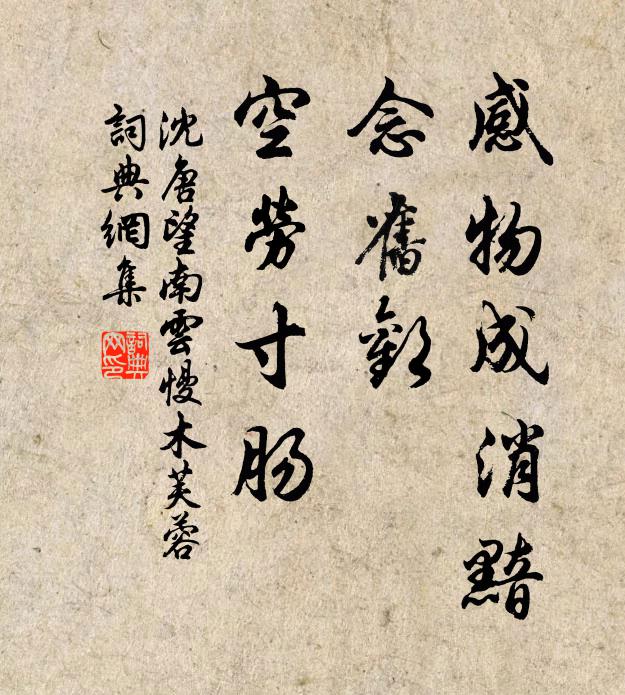 感物成消黯
念舊歡
空勞寸肠
沈唐望南雲慢木芙蓉
詞典網集
詞典
网印